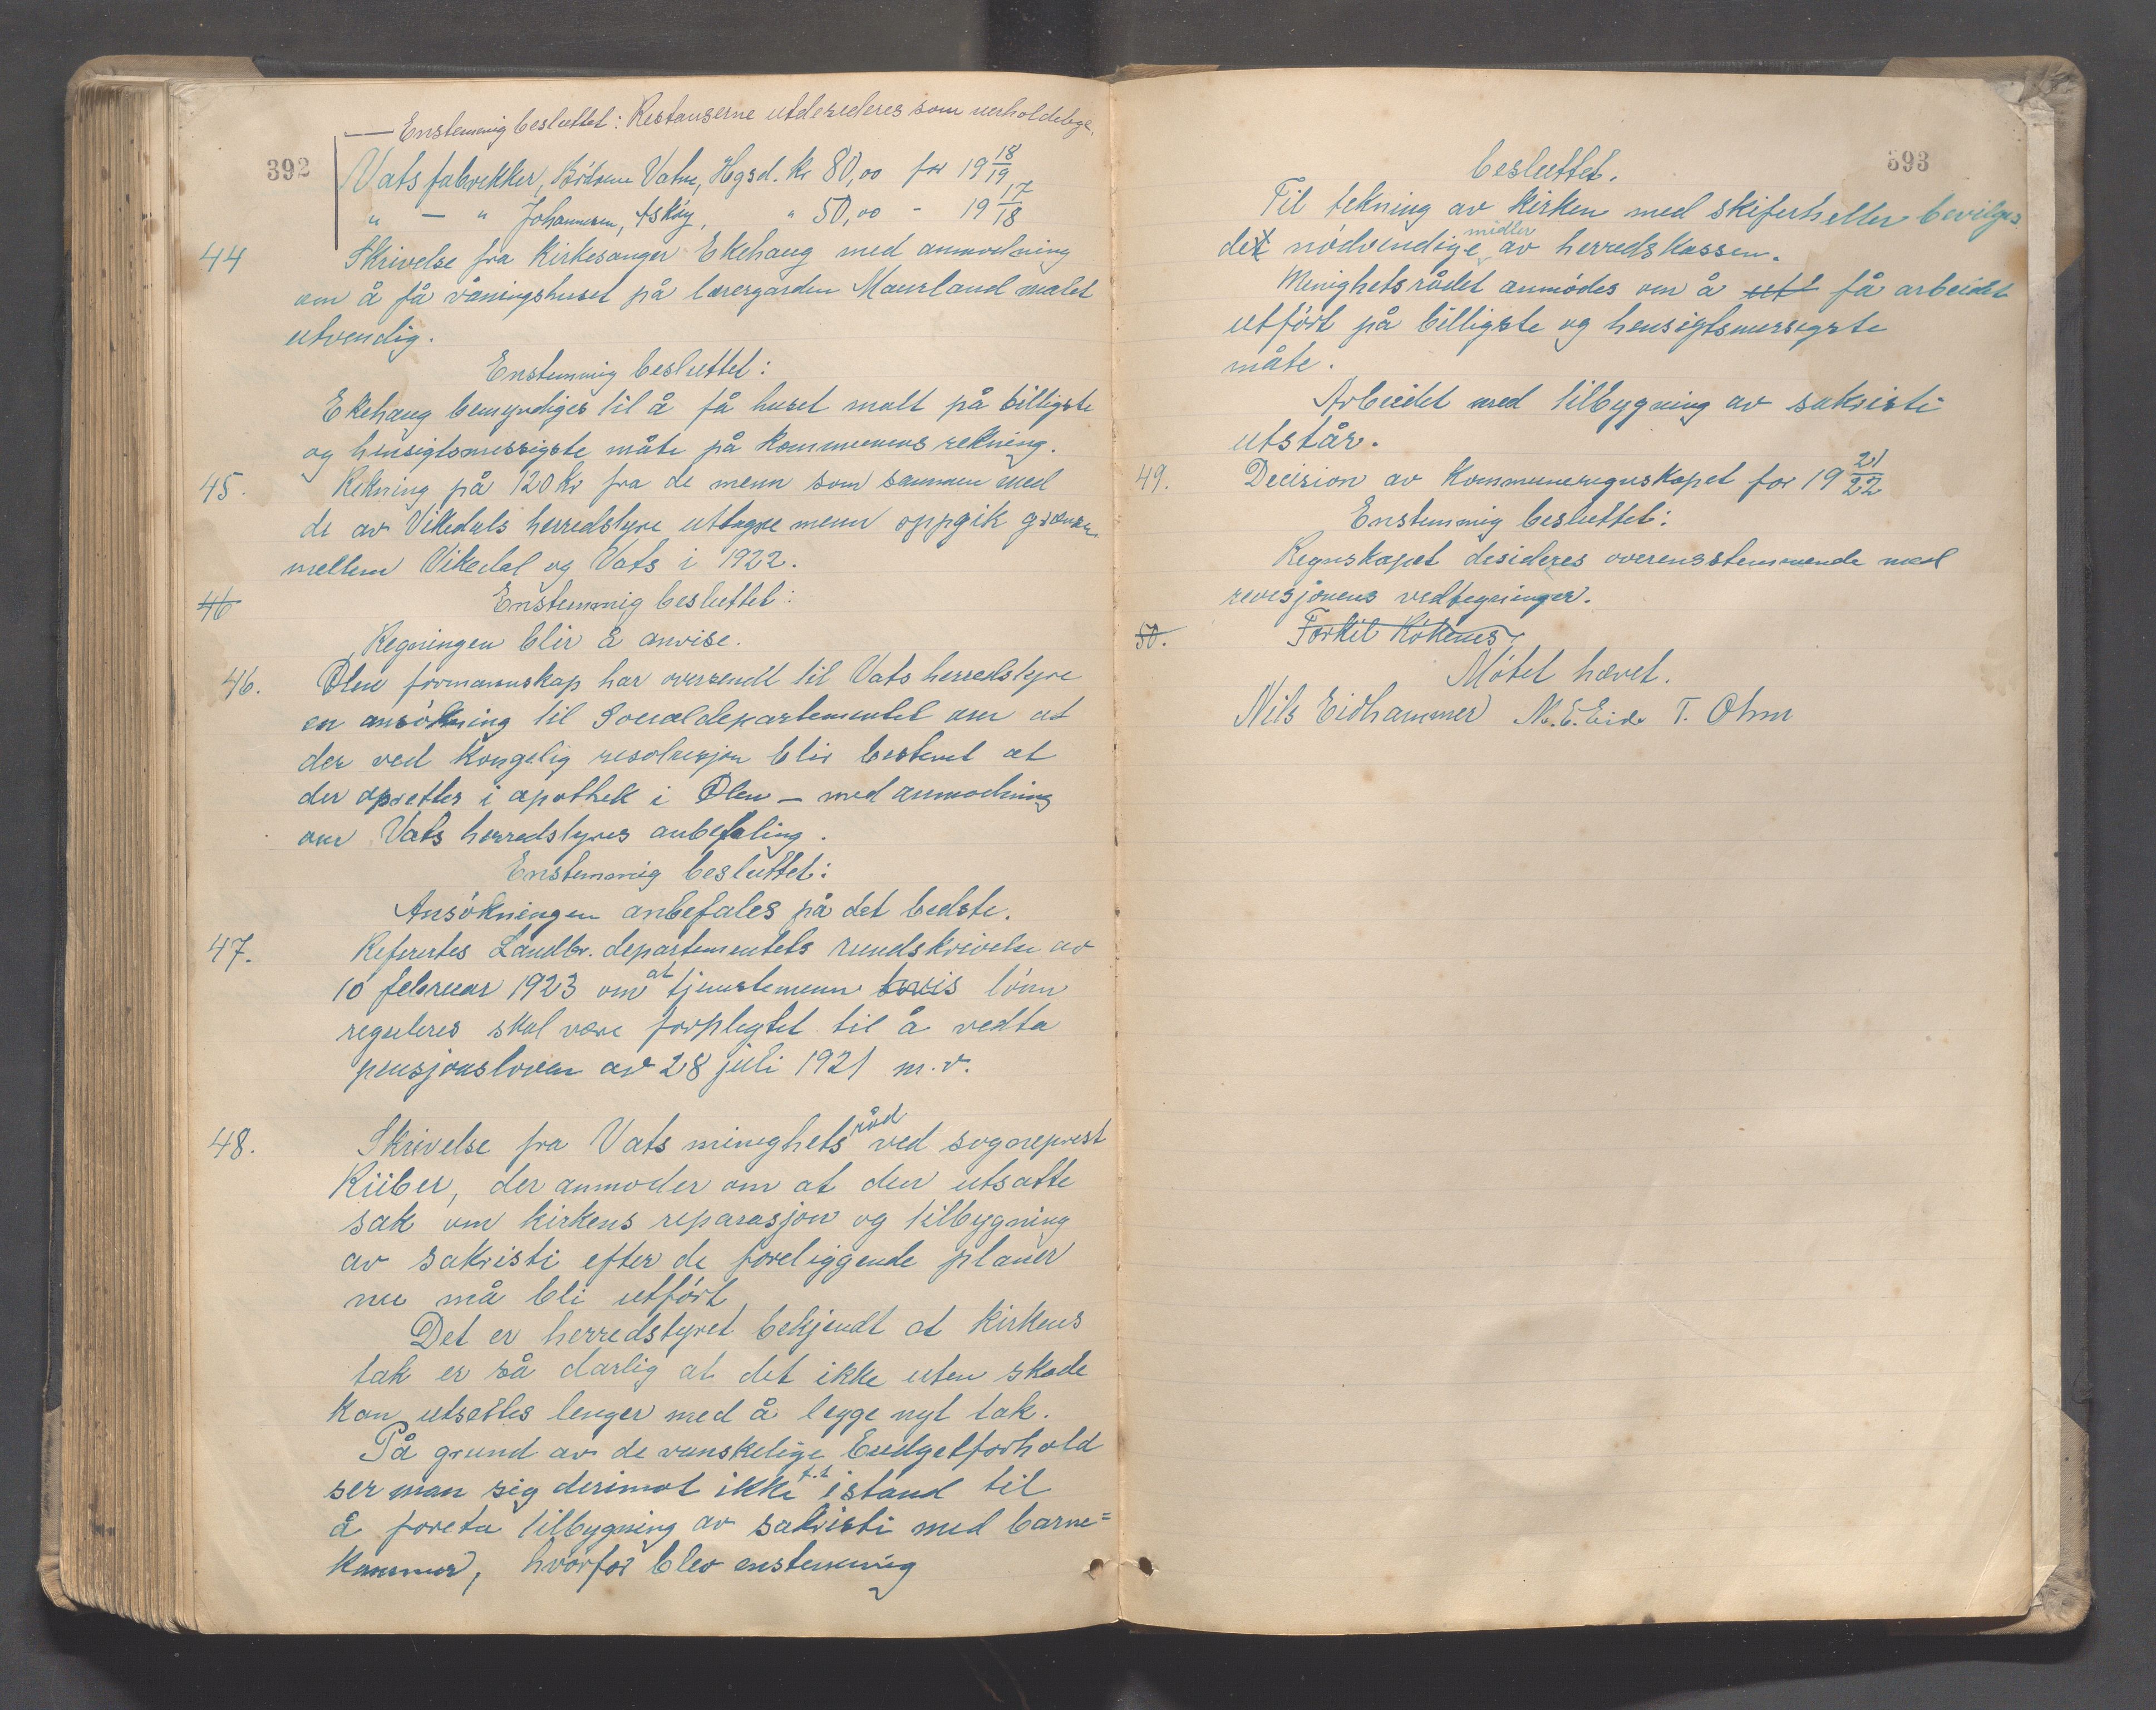 — Enstemmig besluttet: Restanserne utdesideres som uerholdelige.
392
Vats fabrikker, Brödrene Vatne, Hgsd. kr 80,00 for 19 18/19
" — " Johannesen, Askøy, " 50,00 - 19 17/18
44 Skrivelse fra Kirkesanger Ekehaug med anmodning
om å få våningshuset på lærergarden Maurland malet
utvendig.
Enstemmig besluttet:
Ekehaug bemyndiges til å få huset malt på billigste
og hensigtsmessigste måte på kommunens rekning.
45. Rekning på 120 kr fra de menn som sammen med
de av Vikedals herredstyre uttagne menn oppgik grænsen
mellem Vikedal og Vats i 1922.
46 Enstemmig besluttet:
Regningen blir å anvise.
46. Ølen formannskap har oversendt til Vats herredstyre
en ansökning til Socialdepartementet om at
der ved kongelig resolusjon blir bestemt at
der oprettes i apothek i Ølen — med anmodning
om Vats herredstyres anbefaling.
Enstemmig besluttet:
Ansökningen anbefales på det bedste.
47. Refertes Landbr. departementets rundskrivelse av
10 februar 1923 om at tjenestemenn hvis lönn
reguleres skal være forpligtet til å vedta
pensjonsloven av 28 juli 1921 m.v.
48. Skrivelse fra Vats menighets råd ved sogneprest
Riiber, der anmoder om at den utsatte
sak om kirkens reparasjon og tilbygning
av sakristi efter de foreliggende planer
nu må bli utfört
Det er herredstyret bekjendt at kirkens
tak er så darlig at det ikke uten skade
kan utsettes lenger med å legge nyt tak.
På grund av de vanskelige budgetforhold
ser man sig derimot ikke f.t. istand til
å foreta tilbygning av sakristi med barne=
kammer, hvorfor blev enstemmig
393
besluttet.
Til tekning av kirken med skiferheller bevilges
det nödvendige midler av herredskassen.
Menighetsrådet anmodes om å utf få arbeidet
utfört på billigste og hensigtsmessigste
måte.
Arbeidet med tilbygning av sakristi
utstår.
49. Decision av Kommuneregnskapet for 19 21/22
Enstemmig besluttet:
Regnskapet desideres overensstemmende med
revisjonens vedtegninger.
50. Torkil Kökenes
Mötet hævet.
Nils Eidhammer N. E. Eide T. Ohm